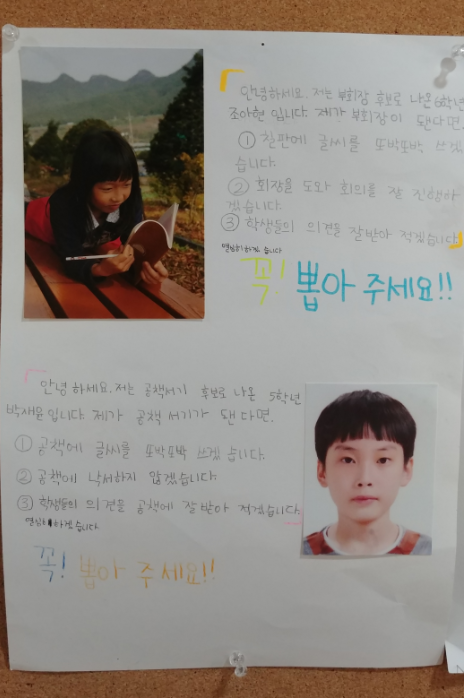 안녕하세요. 저는 부회장 후보로 나온 6학년
조아현 입니다. 제가 부회장이 됀다면
① 칠판에 글씨를 또박또박 쓰겠
습니다.
② 회장을 도와 회의를 잘 진행하
겠습니다.
③ 학생들의 의견을 잘받아 적겠습니다.
열심히 하겠습니다
꼭! 뽑아 주세요!!
안녕하세요. 저는 공책서기 후보로 나온 5학년
입니다. 제가 공책 서기가 됀다면.
① 공책에 글씨를 또박또박 쓰겠습니다.
② 공책에 낙서하지 않겠습니다.
③ 학생들의 의견을 공책에 잘받아 적겠습니다.
열심히 하겠습니다.
꼭! 뽑아 주세요!!